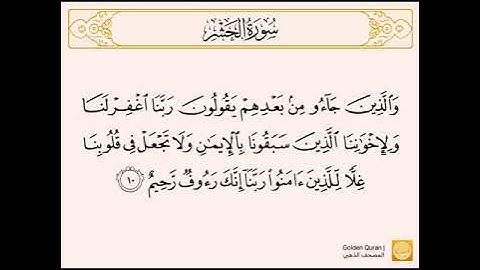 سُورَةُ الحَشْرِ
وَالَّذِينَ جَاءُو مِنۢ بَعْدِهِمْ يَقُولُونَ رَبَّنَا اغْفِرْ لَنَا
وَلِإِخْوَٰنِنَا الَّذِينَ سَبَقُونَا بِالْإِيمَٰنِ وَلَا تَجْعَلْ فِى قُلُوبِنَا
غِلًّا لِّلَّذِينَ ءَامَنُوا۟ رَبَّنَا إِنَّكَ رَءُوفٌ رَّحِيمٌ ١٠
Golden Quran |
المصحف الذهبي